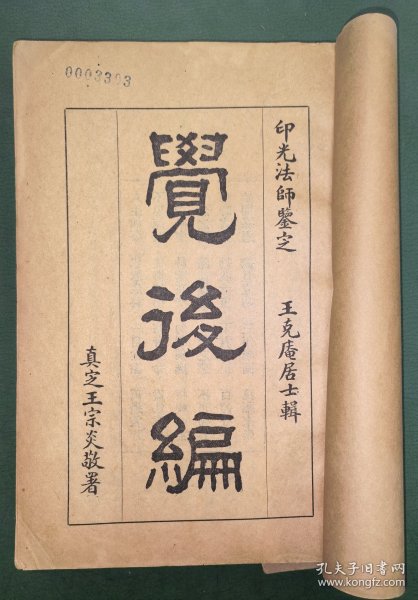 0003393
印光法師鑒定
王克庵居士輯
覺後編
真定王宗炎敬署
孔夫子旧书网
www.kongfz.com